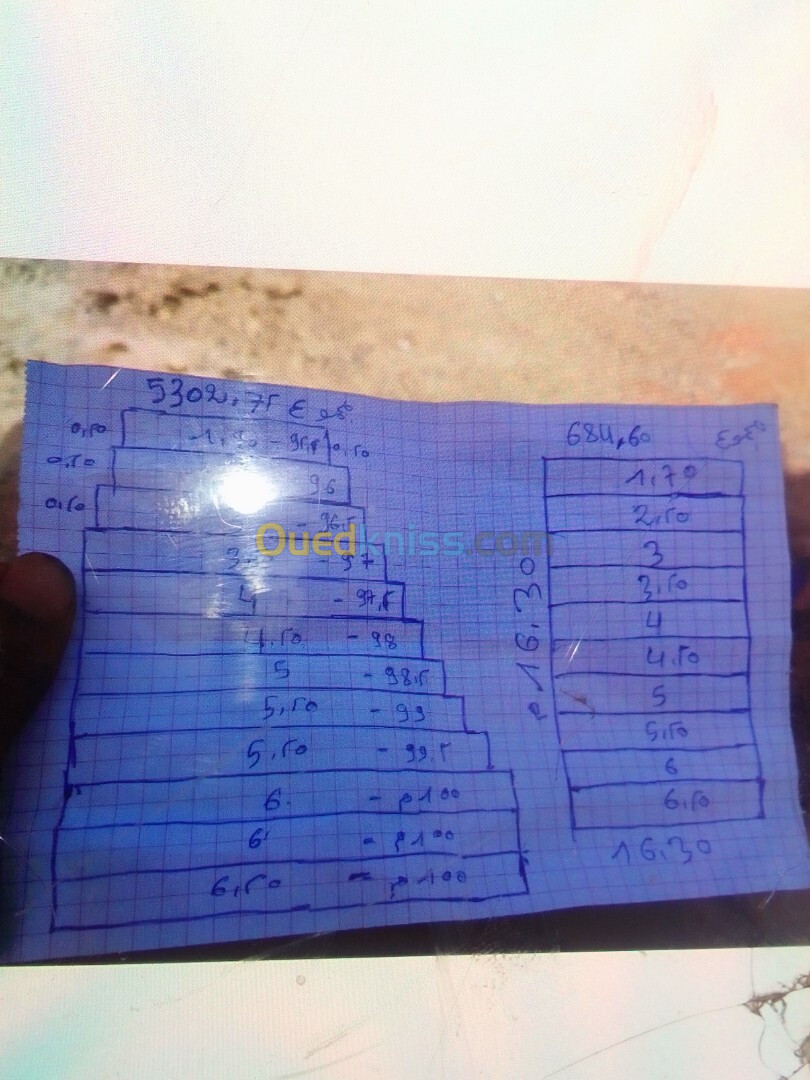 5302,75
0,50
95,5
0,50
0,50
96
0,50
- 96,5
3 - 97
4 - 97,5
4.50 - 98
5 - 98.5
5,50 - 99
5.50 - 99.5
6 - م100
6 - م100
6,50 - م100
Ouedkniss.com
684,60
1,70
2,50
3
3,50
4
4.50
5
5,50
6
6,50
م16.30
16.30